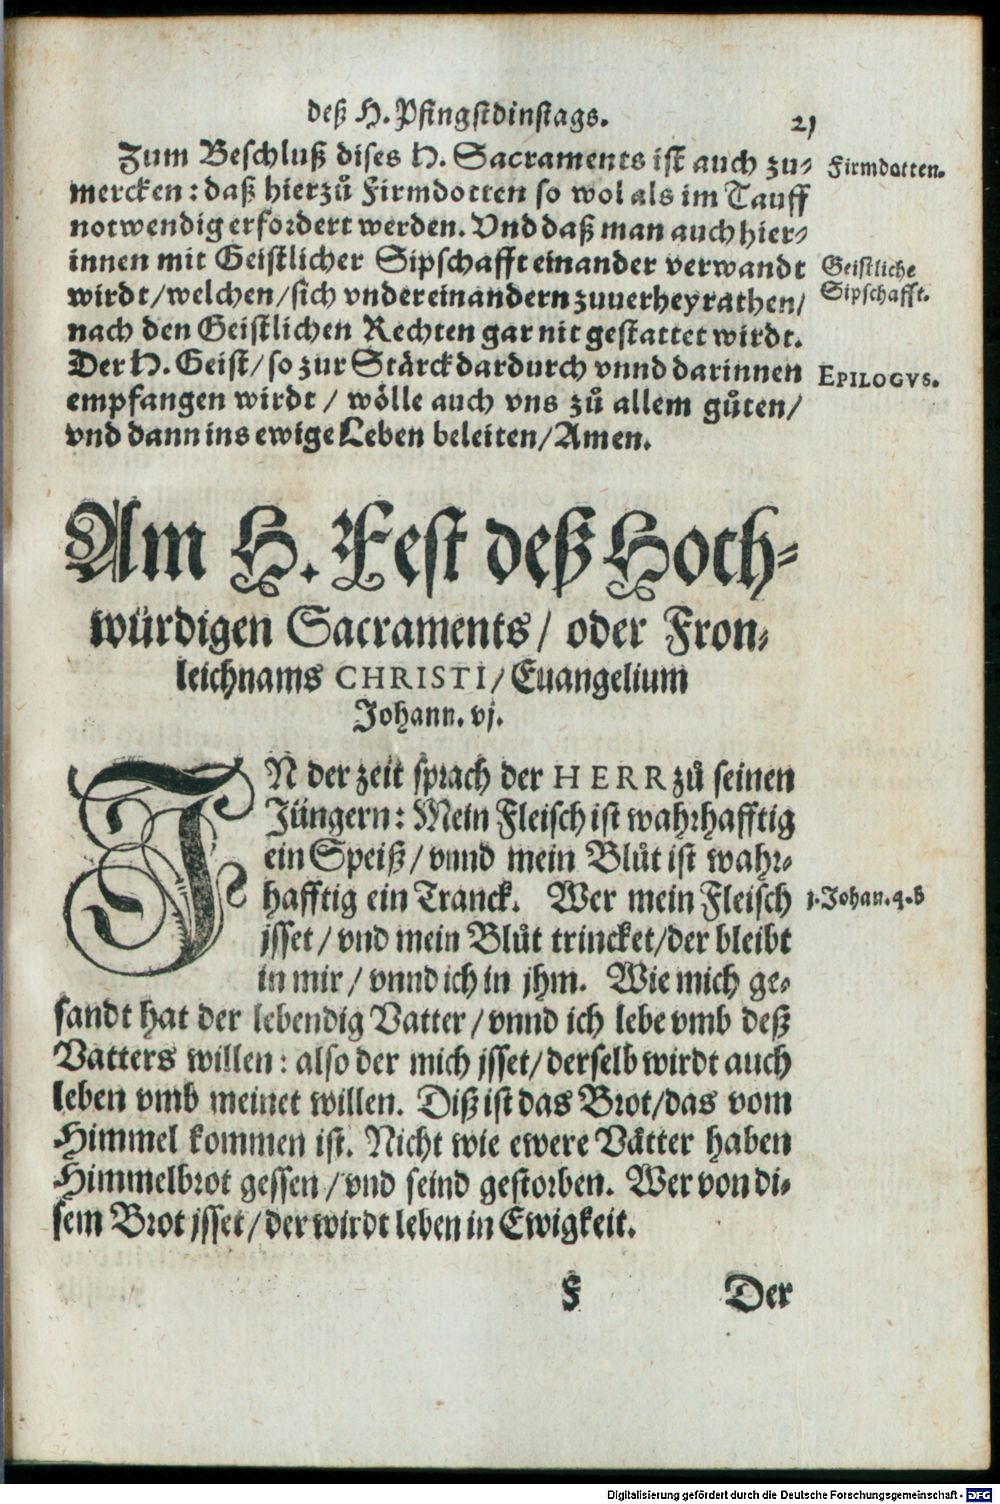 deß H. Pfingstdinstags. 21
Zum Beschluß dises H. Sacraments ist auch zu-
mercken: daß hierzů Firmdotten so wol als im Tauff
notwendig erfordert werden. Vnd daß man auch hier-
innen mit Geistlicher Sipschafft einander verwandt
wirdt/welchen/sich vndereinandern zuuerheyrathen/
nach den Geistlichen Rechten gar nit gestattet wirdt.
Der H. Geist/so zur Stärck dardurch vnnd darinnen
empfangen wirdt / wölle auch vns zů allem gůten/
vnd dann ins ewige Leben beleiten/Amen.
Firmdotten.
Geistliche
Sipschafft.
EPILOGVS.
Am H. Fest deß Hoch-
würdigen Sacraments/ oder Fron-
leichnams CHRISTI/Euangelium
Johann. vj.
IN der zeit sprach der HERR zů seinen
Jüngern: Mein Fleisch ist wahrhafftig
ein Speiß/vnnd mein Blůt ist wahr-
hafftig ein Tranck. Wer mein Fleisch
jsset/vnd mein Blůt trincket/der bleibt
in mir/vnnd ich in jhm. Wie mich ge-
sandt hat der lebendig Vatter/vnnd ich lebe vmb deß
Vatters willen: also der mich jsset/derselb wirdt auch
leben vmb meinet willen. Diß ist das Brot/das vom
Himmel kommen ist. Nicht wie ewere Vätter haben
Himmelbrot gessen/vnd seind gestorben. Wer von di-
sem Brot jsset/der wirdt leben in Ewigkeit.
1. Johan. 4. b
F Der
Digitalisierung gefördert durch die Deutsche Forschungsgemeinschaft - DFG